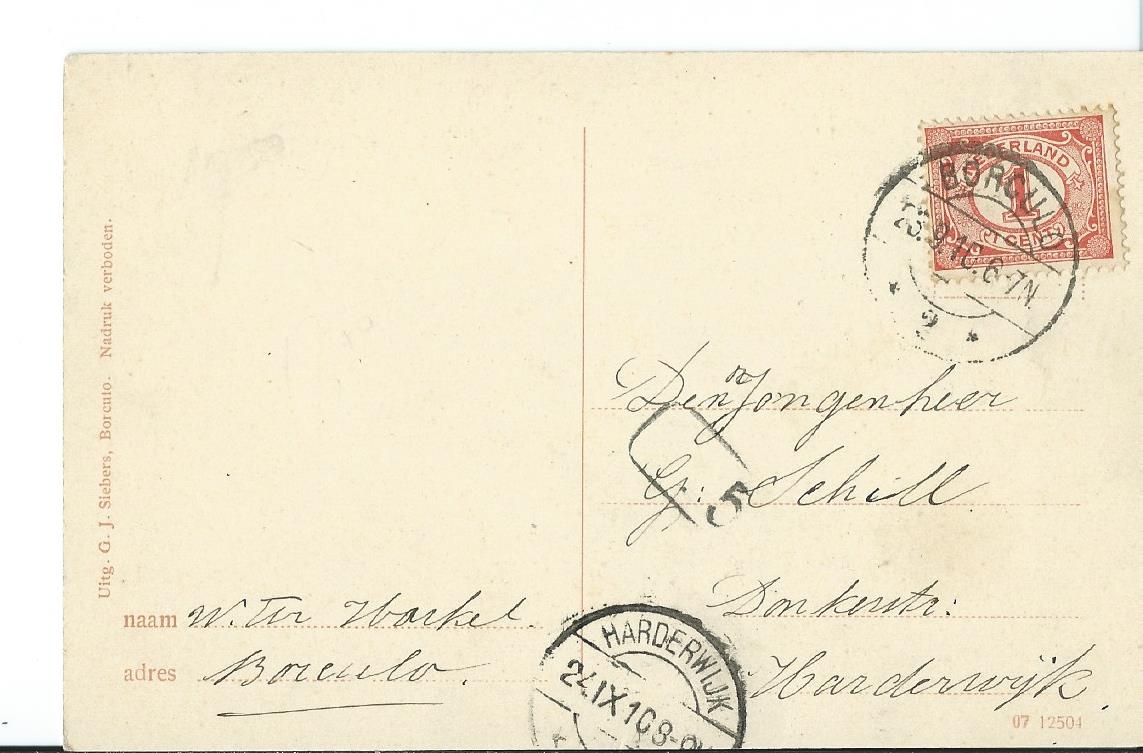 Uitg. G. J. Siebers, Borculo. Nadruk verboden.
NEDERLAND
1
1 CENT
BORCULO
23.9.10.6-7N
2
Den Jongenheer
G: Schill
5
Donkerstr:
Harderwijk
naam W. Ter Horkel.
adres Borculo.
HARDERWIJK
24.IX 10 8-9
07 12504